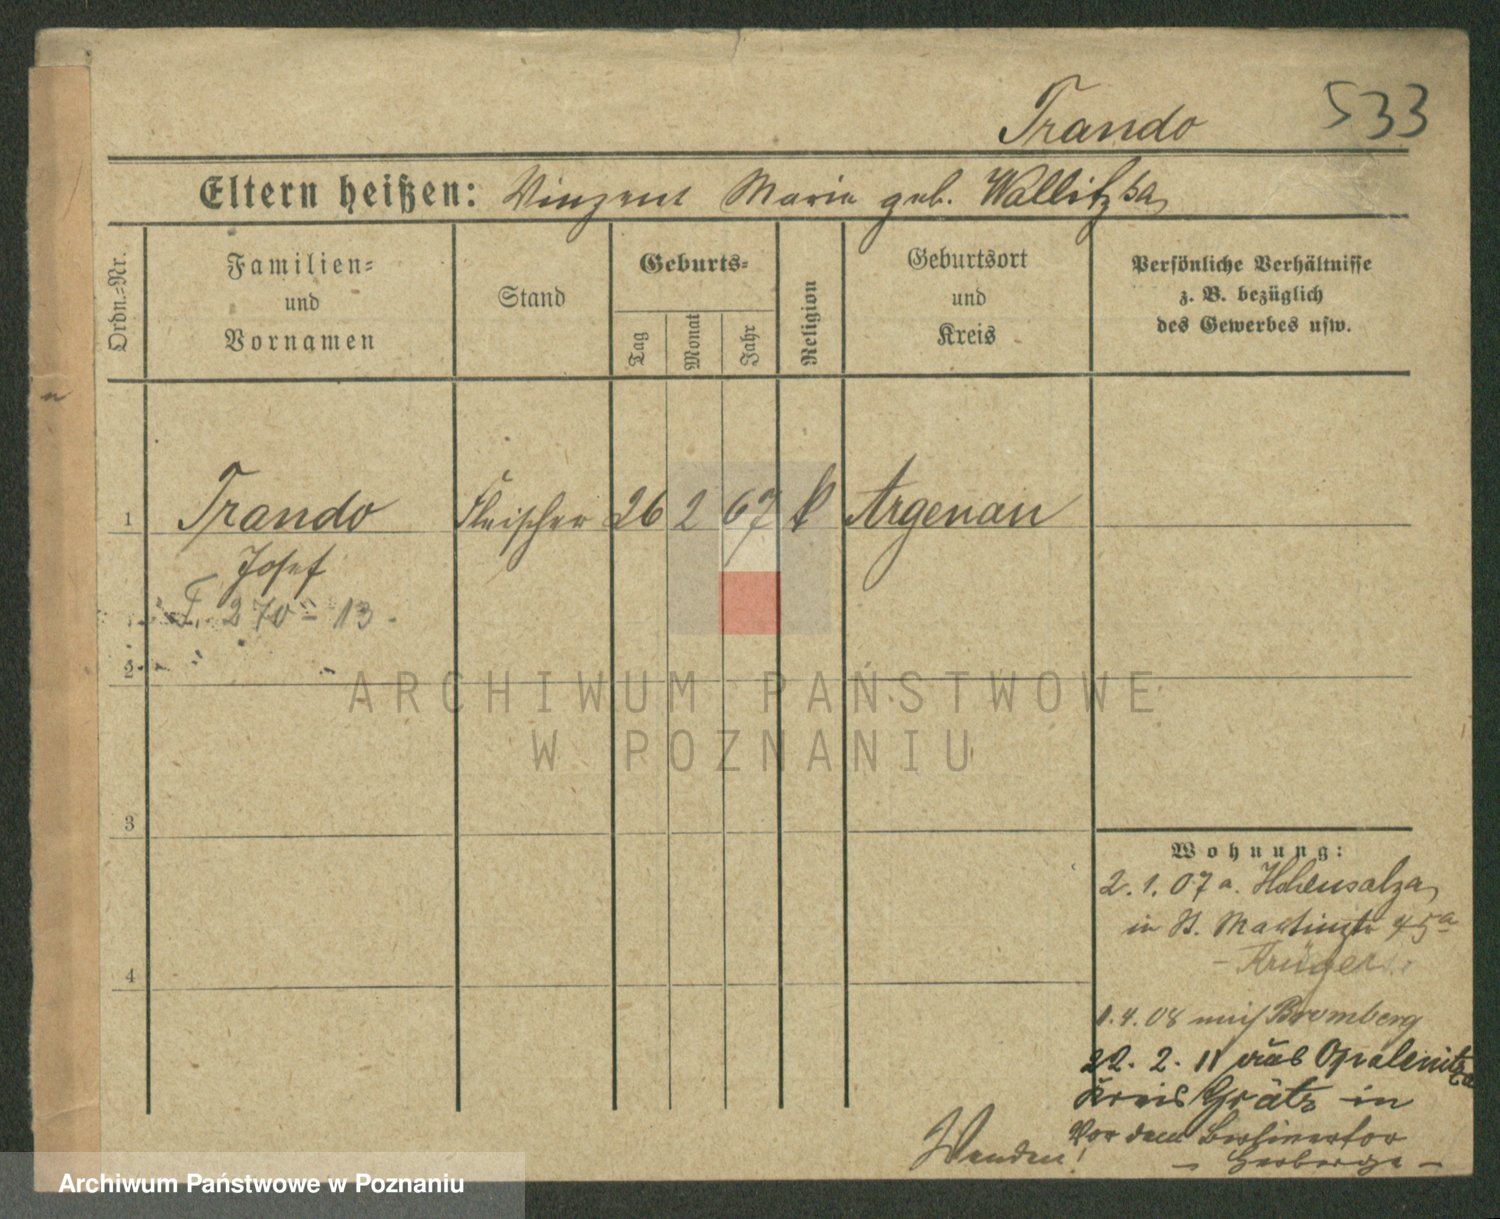 Trando 533
Eltern heißen: Vinzent Maria geb. Wallitzka
Ordn.-Nr.
Familien-
und
Vornamen
Stand
Geburts-
Tag
Monat
Jahr
Religion
Geburtsort
und
Kreis
Persönliche Verhältnisse
z. B. bezüglich
des Gewerbes usw.
1 Trando Fleischer 26 2 67 k Argenau
Josef
F. 270 - 13.
2
ARCHIWUM PAŃSTWOWE
W POZNANIU
3
4
Wohnung:
2.1.07 a. Hohensalza
in St. Martinstr 45a
- Krüger
1.4.08 nach Bromberg
22.2.11 aus Opalenitza
Kreis Grätz in
Vor dem Berlinertor
- Herberge -
Wenden!
Archiwum Państwowe w Poznaniu